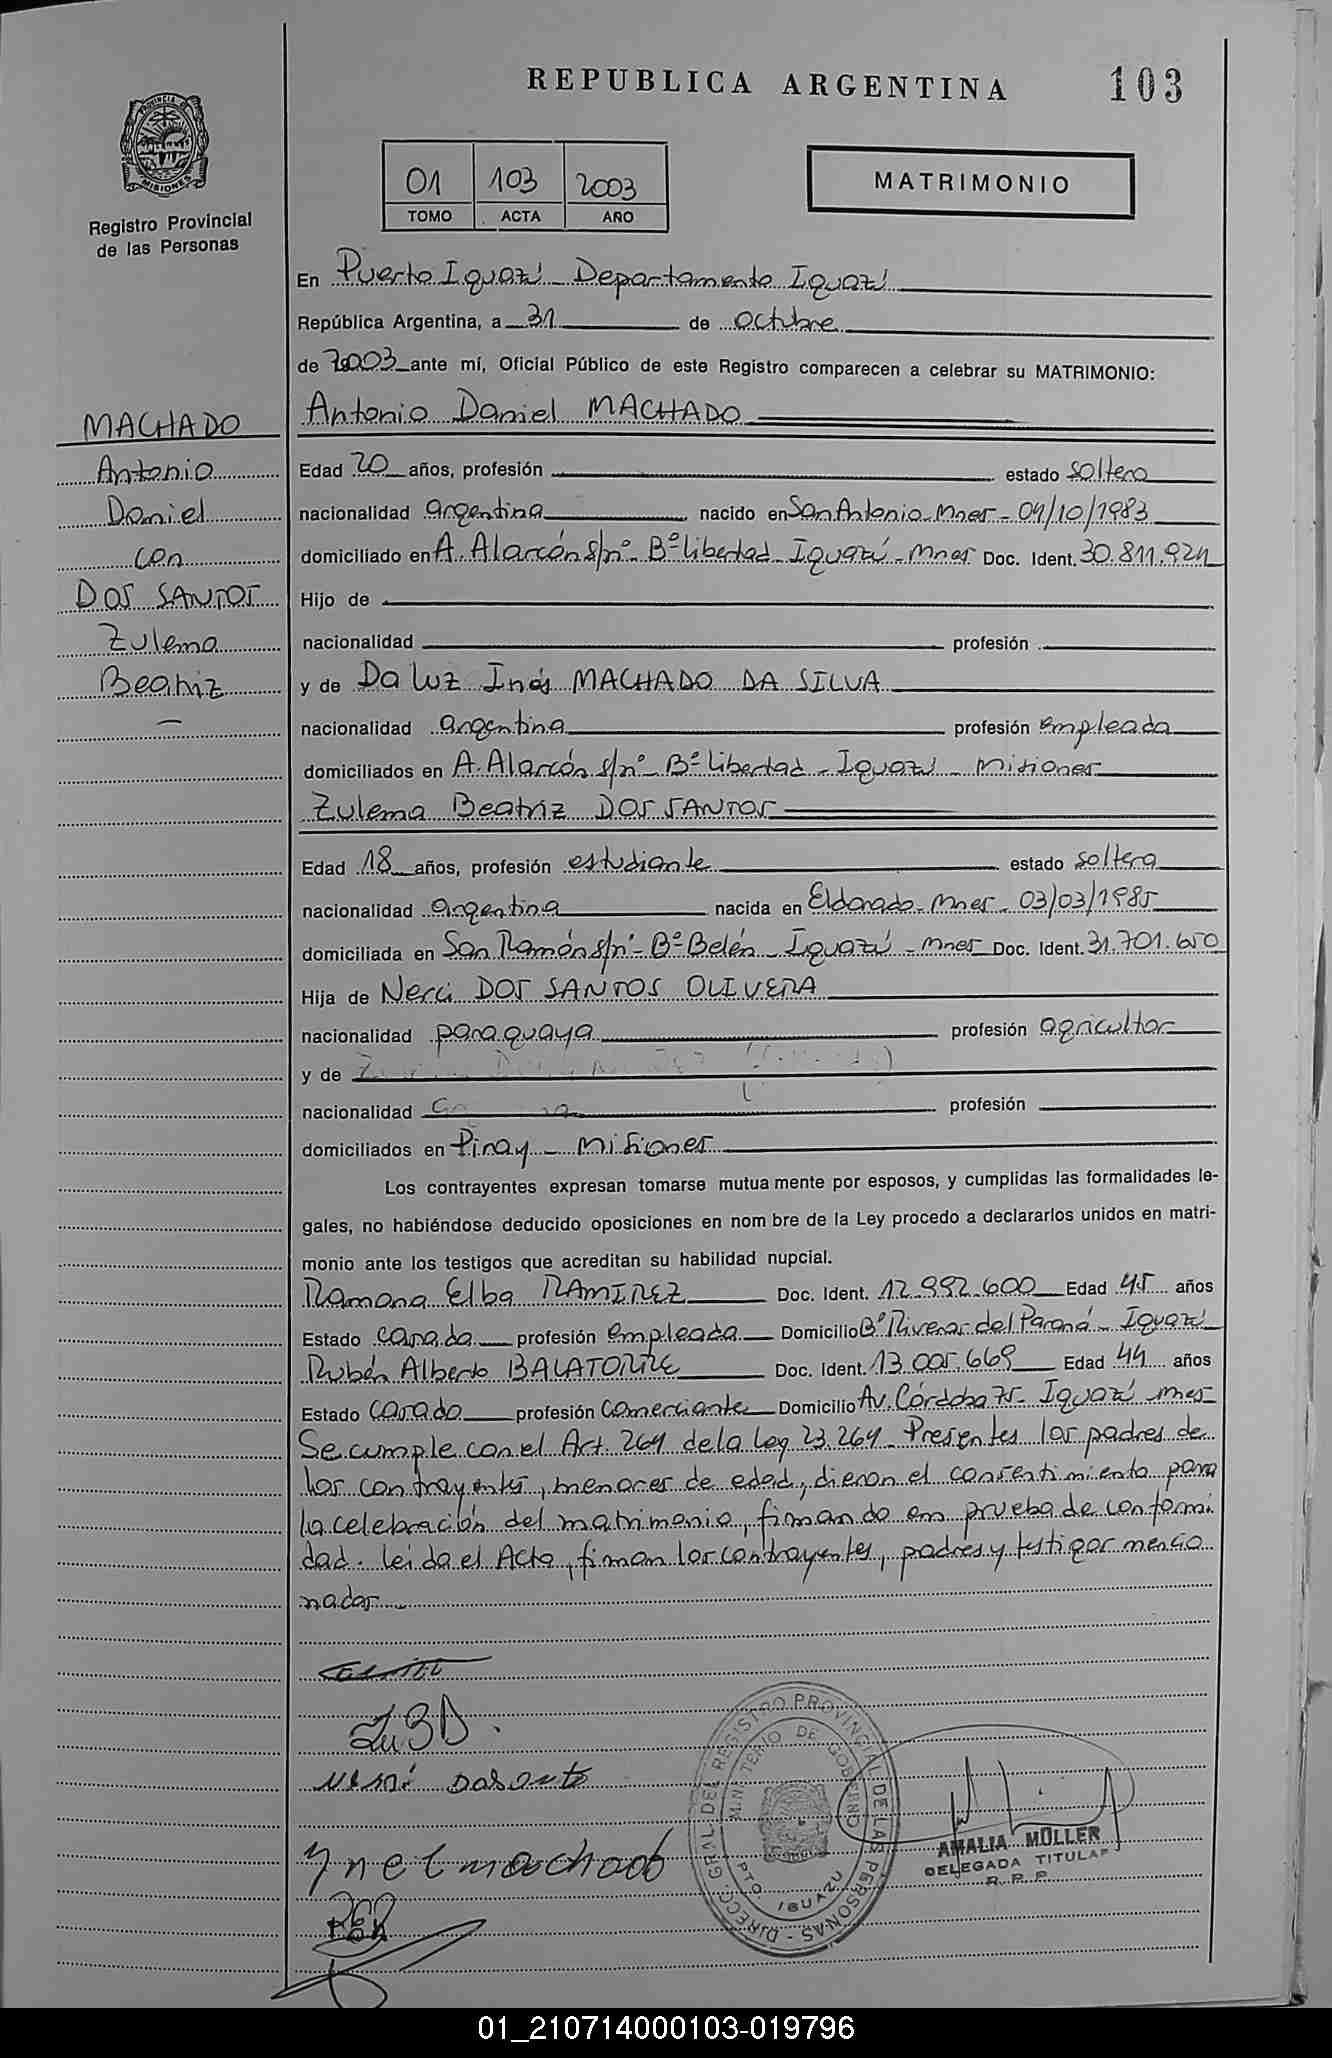 REPUBLICA ARGENTINA 103
PROVINCIA DE
MISIONES
Registro Provincial
de las Personas
01 103 2003
TOMO ACTA AÑO
MATRIMONIO
En Puerto Iguazú - Departamento Iguazú
República Argentina, a 31 de octubre
de 2003 ante mí, Oficial Público de este Registro comparecen a celebrar su MATRIMONIO:
MACHADO
Antonio
Daniel
con
DOS SANTOS
Zulema
Beatriz
Antonio Daniel MACHADO
Edad 20 años, profesión estado soltero
nacionalidad argentina nacido en San Antonio - Mnes - 04/10/1983
domiciliado en A. Alarcón s/nº - Bº Libertad - Iguazú - Mnes Doc. Ident. 30.811.924
Hijo de
nacionalidad profesión
y de Da Luz Inés MACHADO DA SILVA
nacionalidad argentina profesión empleada
domiciliados en A. Alarcón s/nº - Bº Libertad - Iguazú - Misiones
Zulema Beatriz DOS SANTOS
Edad 18 años, profesión estudiante estado soltera
nacionalidad argentina nacida en Eldorado - Mnes - 03/03/1985
domiciliada en San Ramón s/nº - Bº Belén - Iguazú - Mnes Doc. Ident. 31.701.650
Hija de Nerci DOS SANTOS OLIVERA
nacionalidad paraguaya profesión agricultor
y de
nacionalidad profesión
domiciliados en Piray - Misiones
Los contrayentes expresan tomarse mutua mente por esposos, y cumplidas las formalidades le-
gales, no habiéndose deducido oposiciones en nom bre de la Ley procedo a declararlos unidos en matri-
monio ante los testigos que acreditan su habilidad nupcial.
Ramona Elba RAMIREZ Doc. Ident. 12.992.600 Edad 45 años
Estado casada profesión empleada Domicilio Bº Riveras del Paraná - Iguazú
Rubén Alberto BALATORRE Doc. Ident. 13.005.669 Edad 44 años
Estado casado profesión comerciante Domicilio Av. Córdoba 75 - Iguazú - Mnes
Se cumple con el Art. 264 de la Ley 23.264 - Presentes los padres de
los contrayentes, menores de edad, dieron el consentimiento para
la celebración del matrimonio, firmando em prueba de conformi
dad. Leida el Acta, firman los contrayentes, padres y testigos mencio
nados
ZuBD.
Ynes machado
DIRECC. GRAL. DEL REGISTRO PROVINCIAL DE LAS PERSONAS
MINISTERIO DE GOBIERNO
PTO. IGUAZU
AMALIA MÜLLER
DELEGADA TITULAR
R. P. P.
01_210714000103-019796